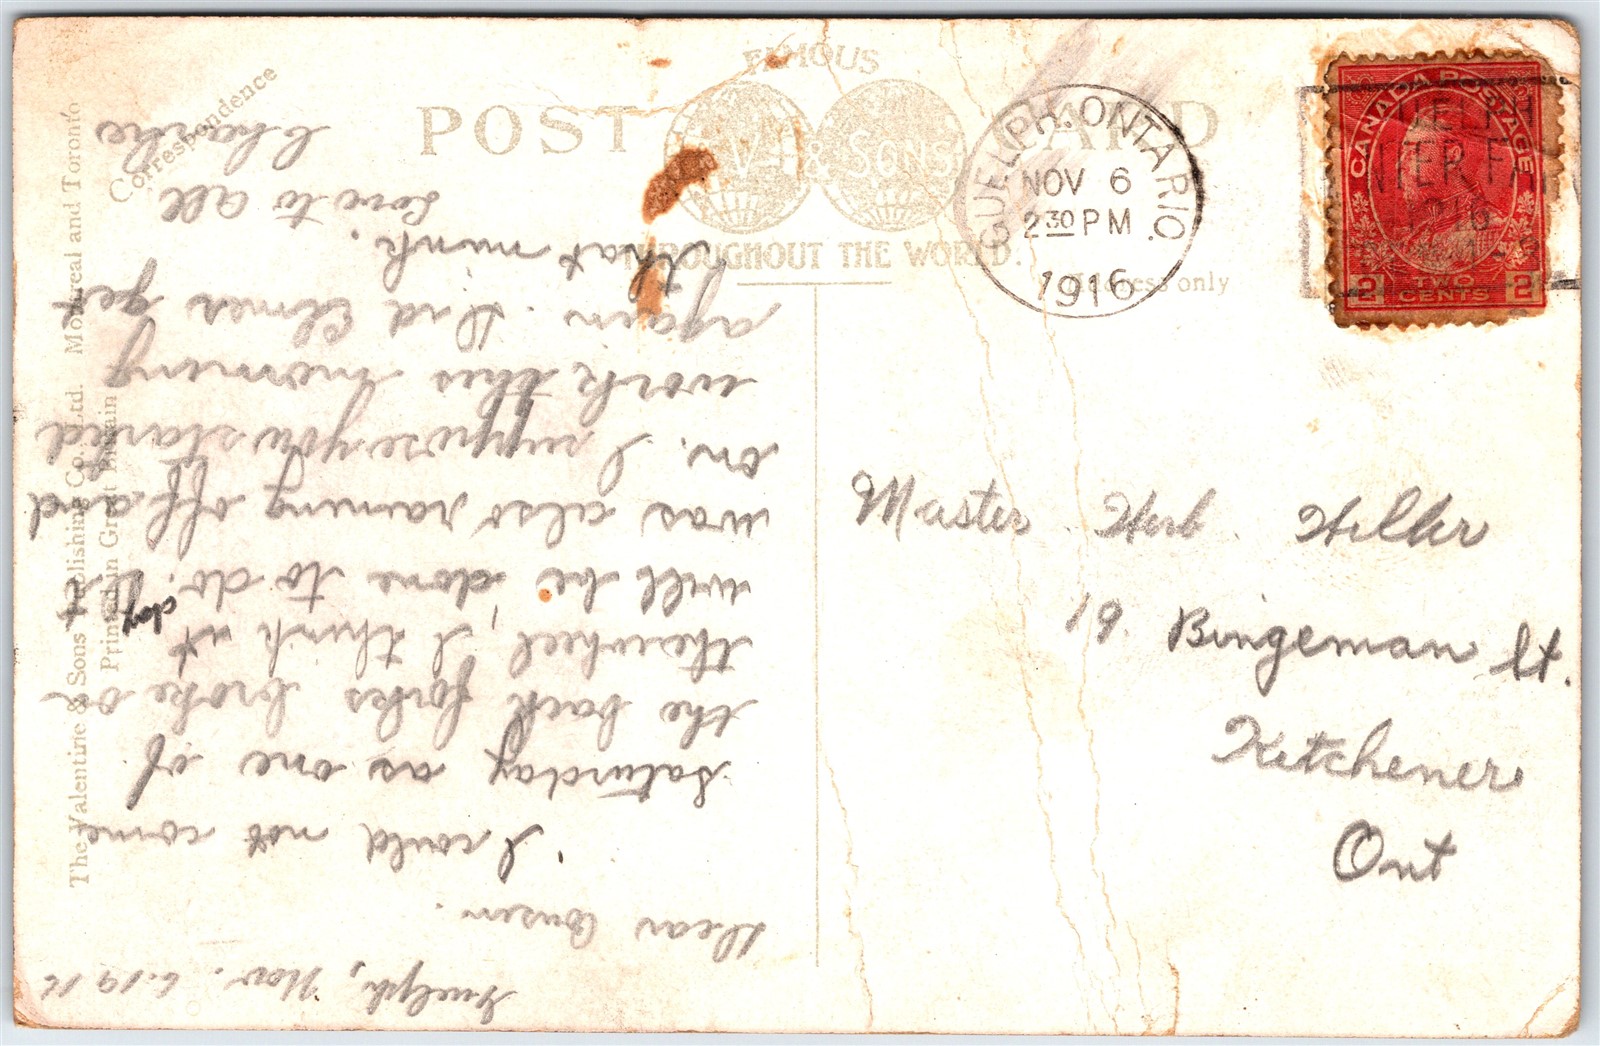 FAMOUS
POST CARD
V & SONS
THROUGHOUT THE WORLD.
Correspondence
Address only
GUELPH. ONTARIO.
NOV 6
2 30 PM
1916
CANADA POSTAGE
2 TWO CENTS 2
Master Herb Heller
19 Bingeman St.
Kitchener
Ont
Guelph, Nov. 6. 1916
Dear Cousin.
I could not come
Saturday as one of
the back forks broke on
the wheel, I think it
will be done to do. It
day
was also raining off and
on. I suppose you started
work this morning
again. Did Elmer get
that mink.
Love to all
Charlie
The Valentine & Sons Publishing Co., Ltd. Montreal and Toronto
Printed in Great Britain